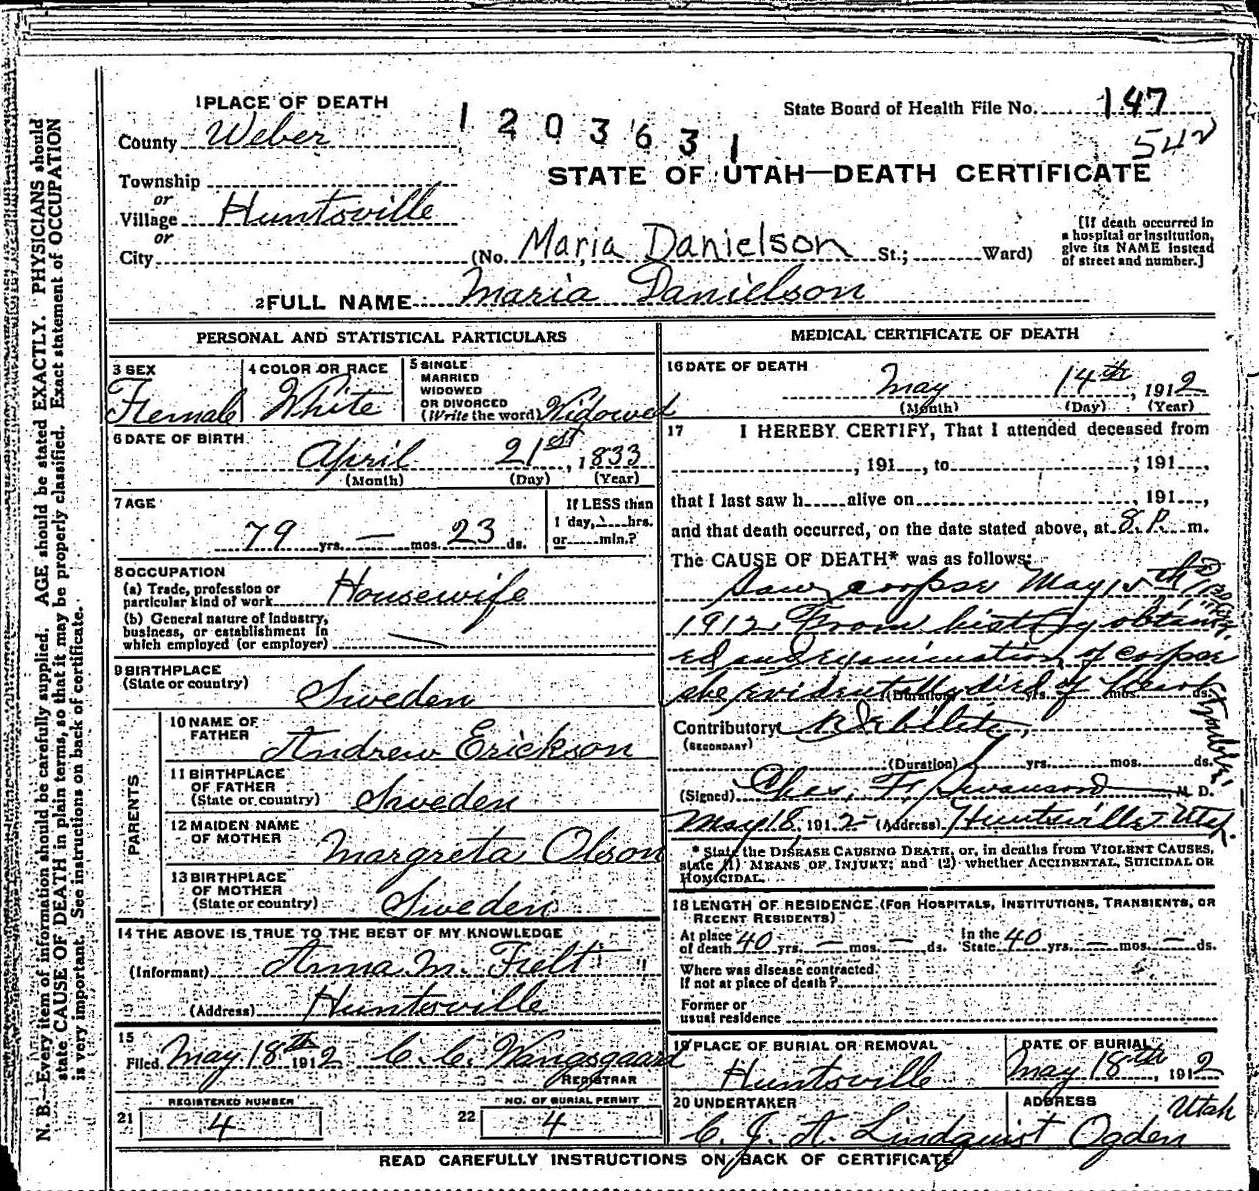 1 PLACE OF DEATH
County Weber
1203631
State Board of Health File No. 147
542
STATE OF UTAH—DEATH CERTIFICATE
Township
or
Village Huntsville
or
City
(No. Maria Danielson St.; Ward)
[If death occurred in
a hospital or institution,
give its NAME instead
of street and number.]
2 FULL NAME Maria Danielson
PERSONAL AND STATISTICAL PARTICULARS
3 SEX
Female
4 COLOR OR RACE
White
5 SINGLE
MARRIED
WIDOWED
OR DIVORCED
(Write the word) Widowed
6 DATE OF BIRTH
April 21st, 1833
(Month) (Day) (Year)
7 AGE
79 yrs. — mos. 23 ds.
If LESS than
1 day, hrs.
or min.?
8 OCCUPATION
(a) Trade, profession or
particular kind of work Housewife
(b) General nature of Industry,
business, or establishment in
which employed (or employer)
9 BIRTHPLACE
(State or country)
Sweden
PARENTS
10 NAME OF
FATHER
Andrew Erickson
11 BIRTHPLACE
OF FATHER
(State or country) Sweden
12 MAIDEN NAME
OF MOTHER
Margreta Olson
13 BIRTHPLACE
OF MOTHER
(State or country) Sweden
14 THE ABOVE IS TRUE TO THE BEST OF MY KNOWLEDGE
(Informant) Anna M. Fielt
(Address) Huntsville
15
Filed May 18th 1912 C. C. Wangsgaard
REGISTRAR
REGISTERED NUMBER
21 4
NO. OF BURIAL PERMIT
22 4
MEDICAL CERTIFICATE OF DEATH
16 DATE OF DEATH
May 14th, 1912
(Month) (Day) (Year)
17 I HEREBY CERTIFY, That I attended deceased from
, 191 , to ; 191 ,
that I last saw h alive on , 191 ,
and that death occurred, on the date stated above, at 8 P. m.
The CAUSE OF DEATH* was as follows:
Saw corpse May 15th
1912. From history obtain
ed and examination of corpse
she evidently died of
(Duration) yrs. mos. ds.
Contributory Debility,
(SECONDARY)
(Duration) yrs. mos. ds.
(Signed) Chas. F. Swanson M. D.
May 18, 1912 (Address) Huntsville Utah.
* State the DISEASE CAUSING DEATH, or, in deaths from VIOLENT CAUSES,
state (1) MEANS OF INJURY; and (2) whether ACCIDENTAL, SUICIDAL OR
HOMICIDAL.
18 LENGTH OF RESIDENCE (FOR HOSPITALS, INSTITUTIONS, TRANSIENTS, OR
RECENT RESIDENTS)
At place
of death 40 yrs. — mos. — ds.
In the
State 40 yrs. — mos. — ds.
Where was disease contracted.
If not at place of death?
Former or
usual residence
19 PLACE OF BURIAL OR REMOVAL
Huntsville
DATE OF BURIAL
May 18th, 1912
20 UNDERTAKER
C. J. A. Lindquist
ADDRESS
Ogden Utah
READ CAREFULLY INSTRUCTIONS ON BACK OF CERTIFICATE
N. B.—Every item of information should be carefully supplied. AGE should be stated EXACTLY. PHYSICIANS should
state CAUSE OF DEATH in plain terms, so that it may be properly classified. Exact statement of OCCUPATION
is very important. See instructions on back of certificate.